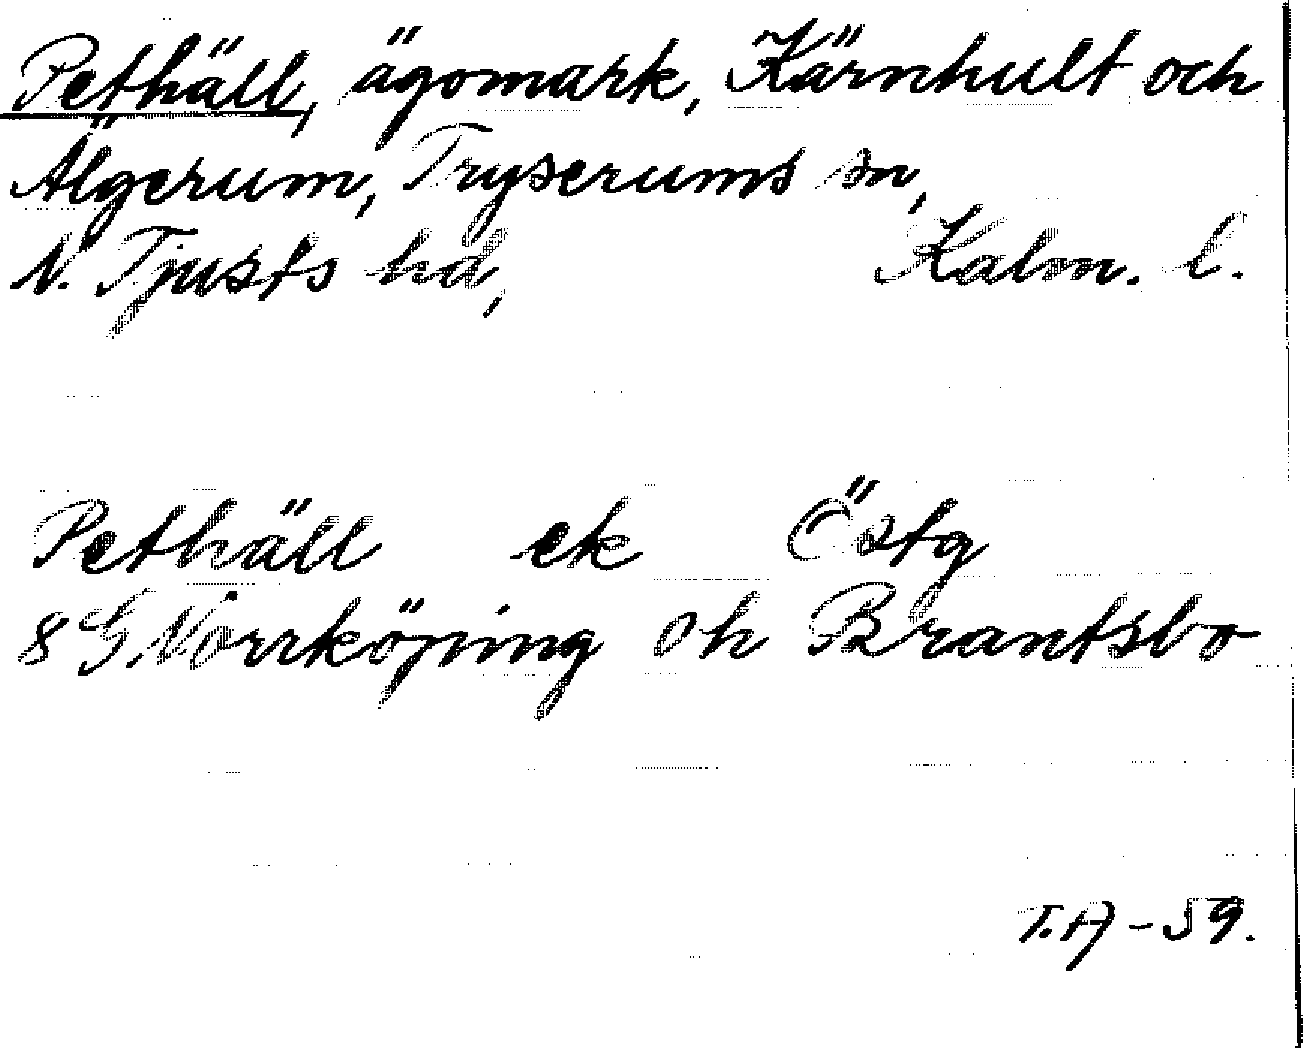 Pethäll, ägomark, Kärnhult och
Älgerum, Tryserums sn,
N. Tjusts hd, Kalm. l.
Pethäll ek Östg
8 G. Norrköping Oh Brantsbo
T.A - 59.